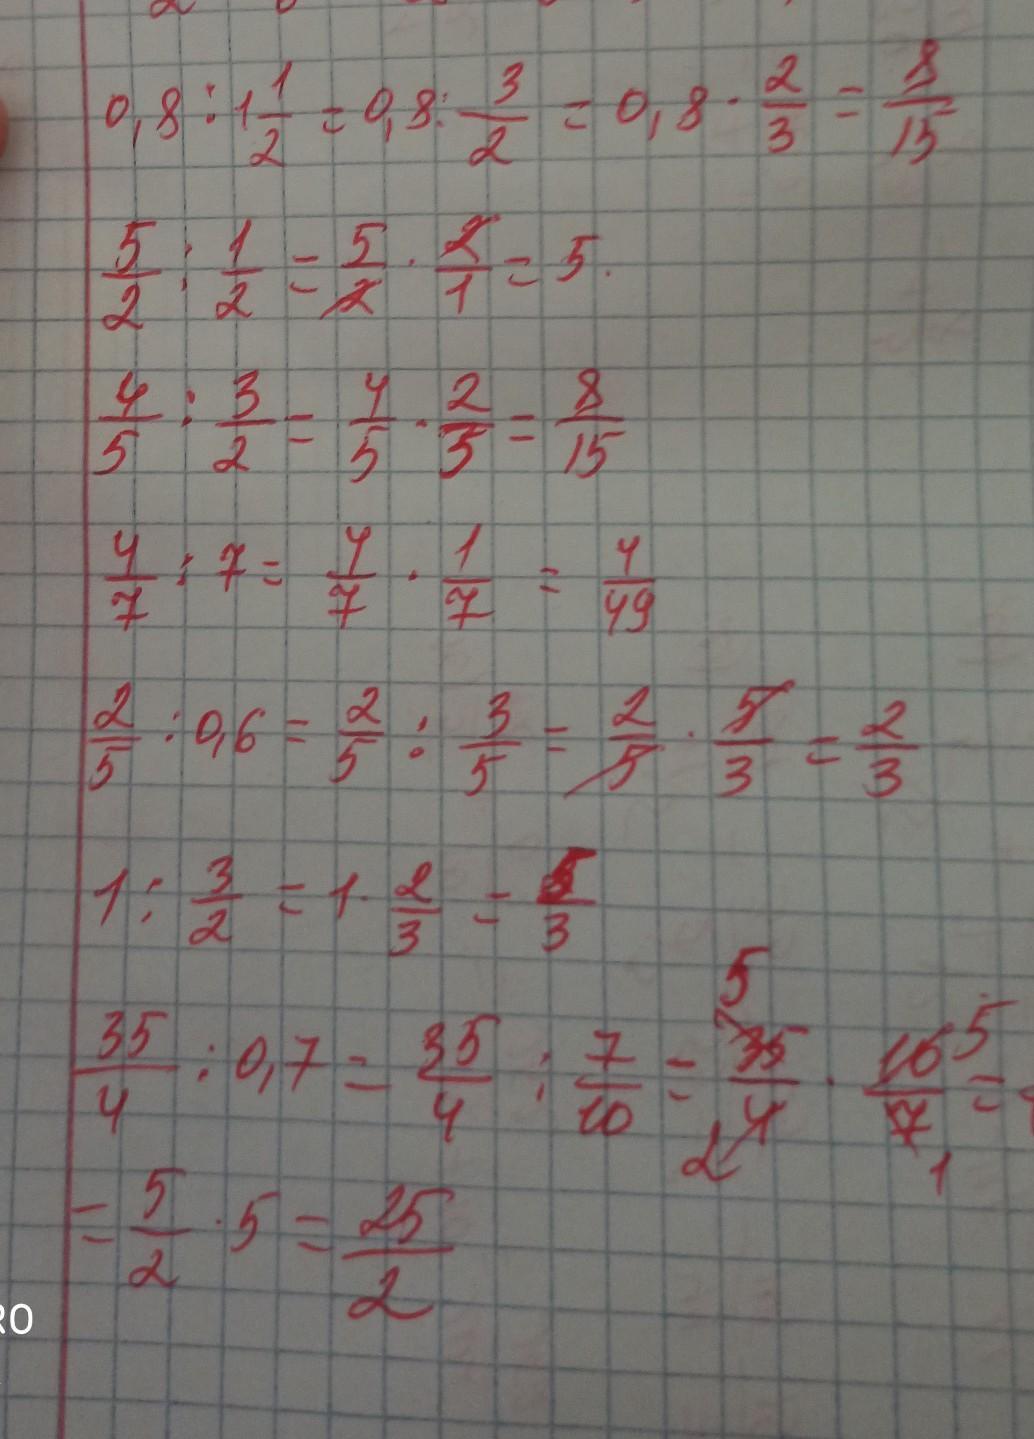 0,8 : 1 1/2 = 0,8 : 3/2 = 0,8 · 2/3 = 8/15
5/2 : 1/2 = 5/2 · 2/1 = 5.
4/5 : 3/2 = 4/5 · 2/3 = 8/15
4/7 : 7 = 4/7 · 1/7 = 4/49
2/5 : 0,6 = 2/5 : 3/5 = 2/5 · 5/3 = 2/3
1 : 3/2 = 1 · 2/3 = /3
35/4 : 0,7 = 35/4 : 7/10 = 35 5/4 2 · 10 5/7 1 =
= 5/2 · 5 = 25/2
RO